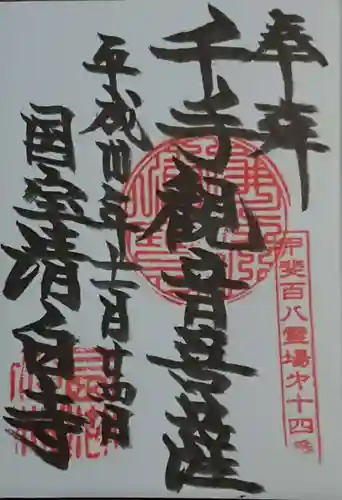 奉拝
甲斐百八霊場㐧十四番
千手觀音菩薩
平成廿三年十一月廿四日
国宝清白寺